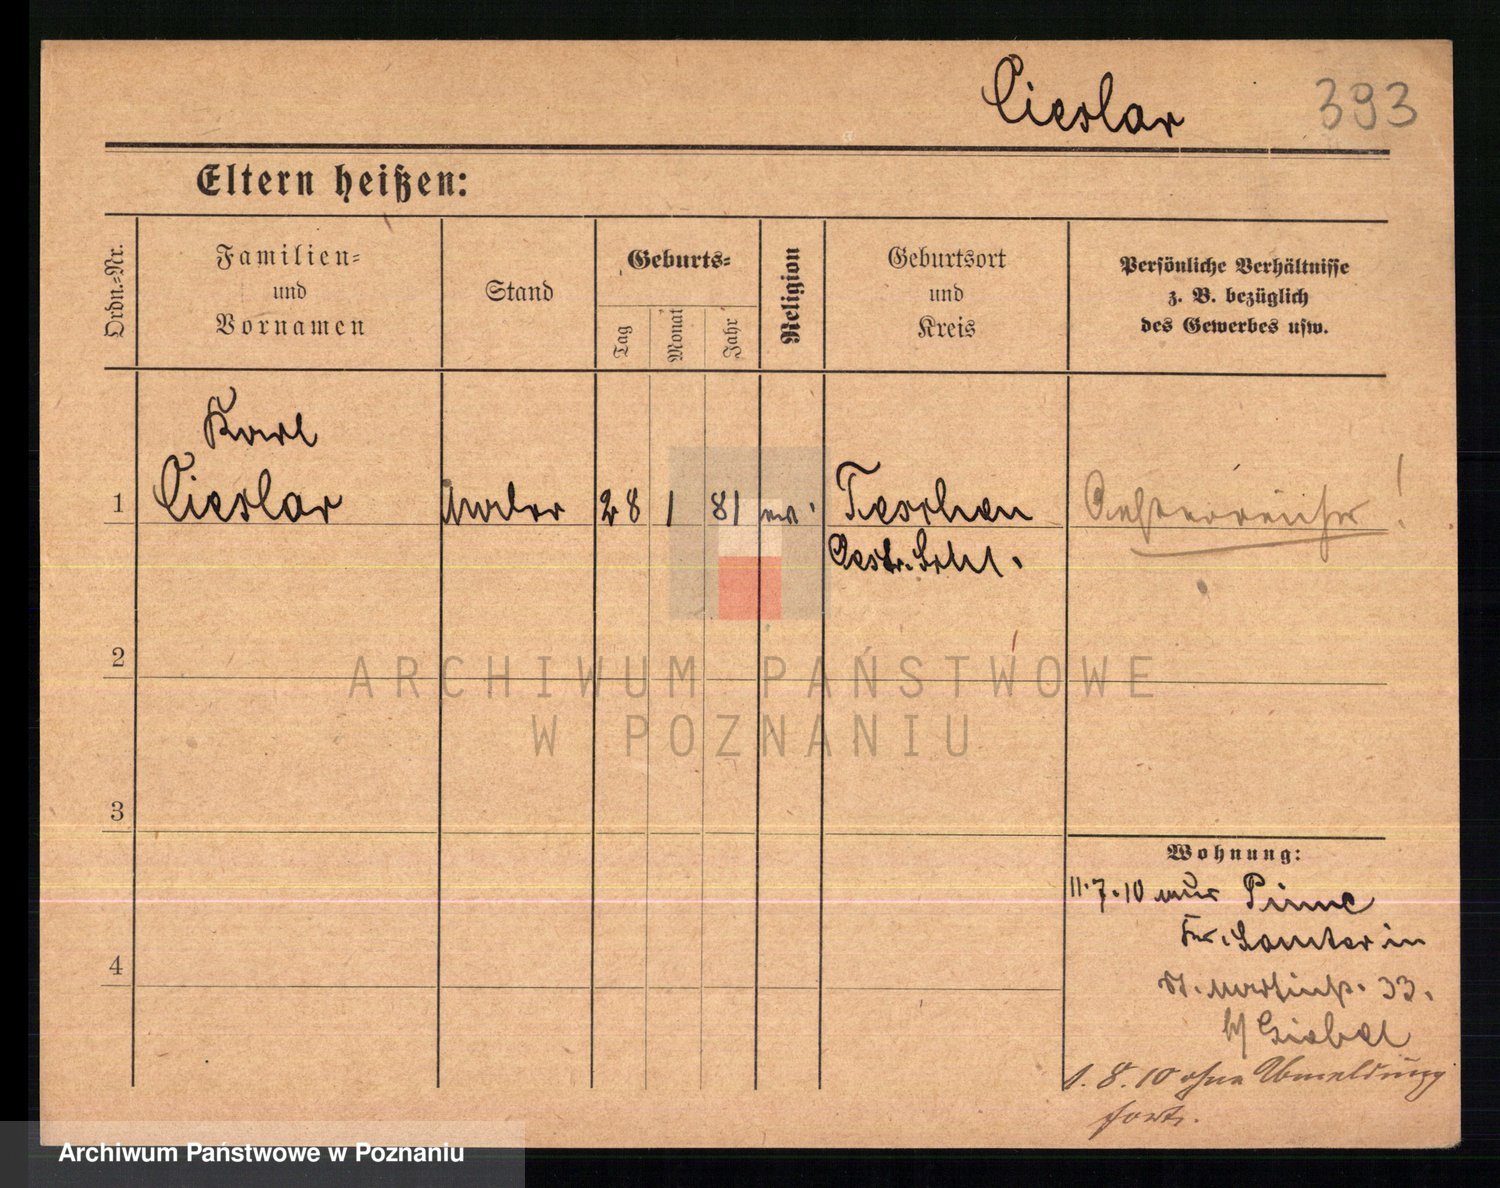 Cieslar 393
Eltern heißen:
Ordn.=Nr.
Familien=
und
Vornamen
Stand
Geburts=
Tag
Monat
Jahr
Religion
Geburtsort
und
Kreis
Persönliche Verhältnisse
z. B. bezüglich
des Gewerbes usw.
Karl
1 Cieslar Maler 28 1 81 ev. Teschen Oesterreicher!
Oestr. Schl.
2
3
4
Wohnung:
11.7.10 aus Pinne
Kr. Samter in
St. Martinstr. 33.
b/ Giebel
1. 8. 10 ohne Abmeldung
fort.
ARCHIWUM PAŃSTWOWE
W POZNANIU
Archiwum Państwowe w Poznaniu